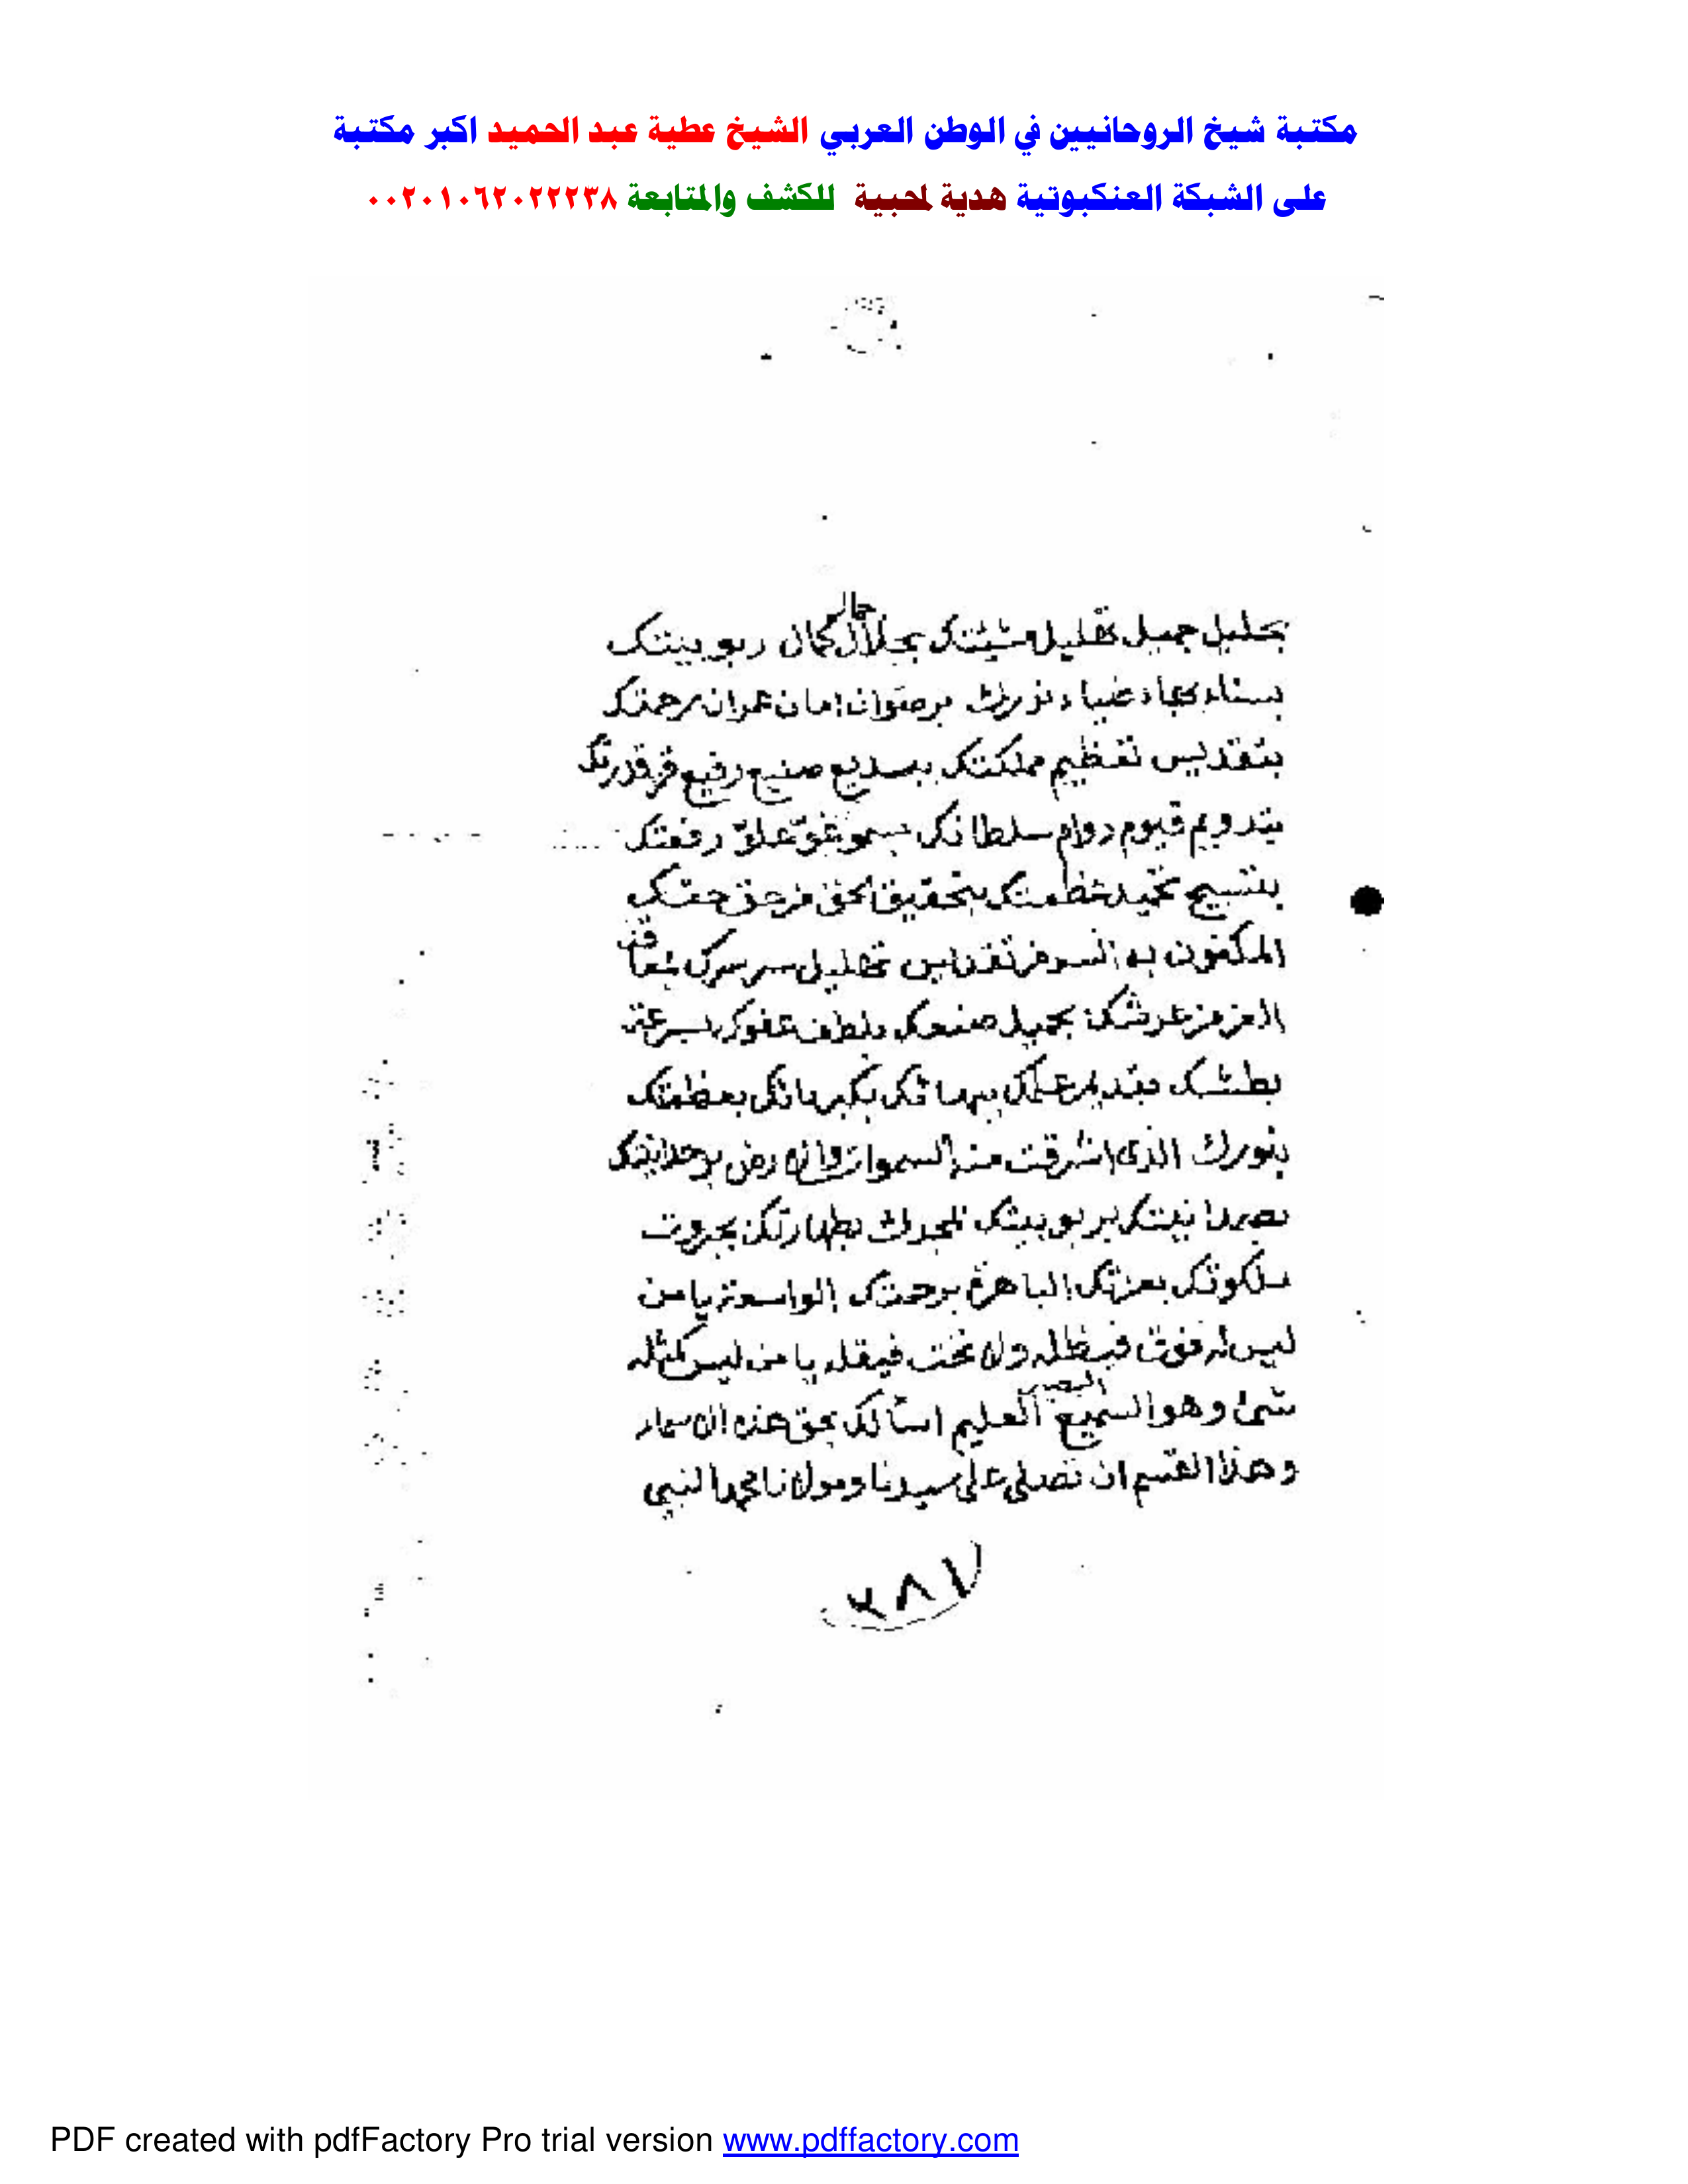 مكتبة شيخ الروحانيين في الوطن العربي الشيخ عطية عبد الحميد اكبر مكتبة
على الشبكة العنكبوتية هدية لمحبية للكشف والمتابعة ٠٠٢٠١٠٦٢٠٢٢٢٣٨
بجليل جميل مشيئتك بجلال جمال كمال ربوبيتك
بسناء بهاء ضياء نورك برضوان امان رحمتك
بتقديس تعظيم مملكتك ببديع صنيع رفيع قدرتك
بتدويم قيوم دوام سلطانك بسمو علو رفعتك
بتسبيح عظمتك بتحقيق الحق حق حقك
المكنون به سرك
العز من عرشك بجميل صنعك بلطف عفوك بسرعة
بطشك ببهائك بكبريائك بعظمتك
بنورك الذى اشرقت منه السموات والارض بوحدانيتك
بصمدانيتك بربوبيتك بمجدك بطهارتك بجبروت
ملكوتك بعزتك الباهرة برحمتك الواسعة يا من
ليس له فوق فيظله ولا تحت فيقله يا من ليس كمثله
شئ وهو السميع البصير العليم اسألك بحق هذه الاسماء
وهذا القسم ان تصلى على سيدنا ومولانا محمد النبي
١٨٢
PDF created with pdfFactory Pro trial version www.pdffactory.com